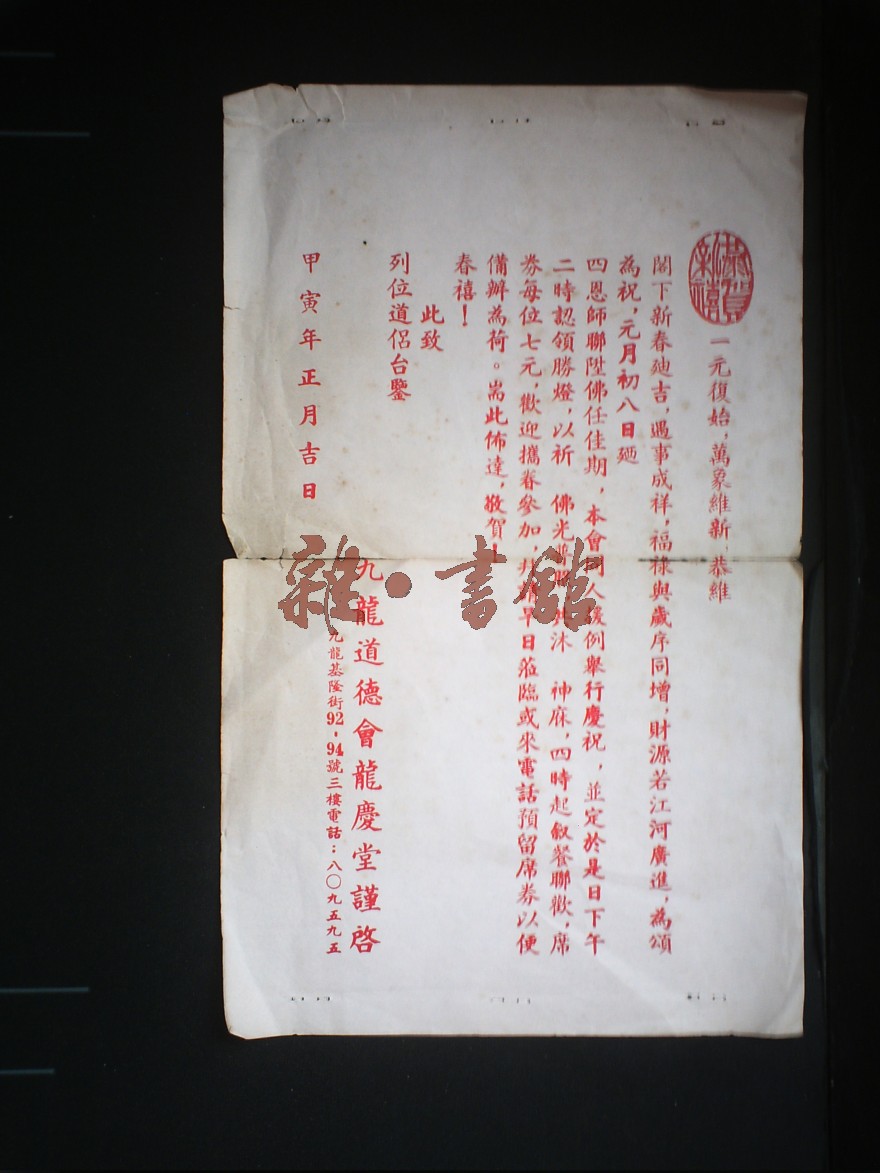 恭賀新禧
一元復始，萬象維新，恭維
閣下新春廸吉，遇事成祥，福祿與歲序同增，財源若江河廣進，為頌
為祝，元月初八日廼
四恩師聯陞佛任佳期，本會同人援例舉行慶祝，並定於是日下午
二時認領勝燈，以祈　佛光普照　沐　神庥，四時起敘餐聯歡，席
券每位七元，歡迎攜眷參加，早日蒞臨或來電話預留席券以便
備辦為荷。耑此佈達，敬賀
春禧！
此致
列位道侶台鑒
九龍道德會龍慶堂謹啓
九龍基隆街92，94號三樓電話：八〇九五九五
甲寅年正月吉日
雜·書館